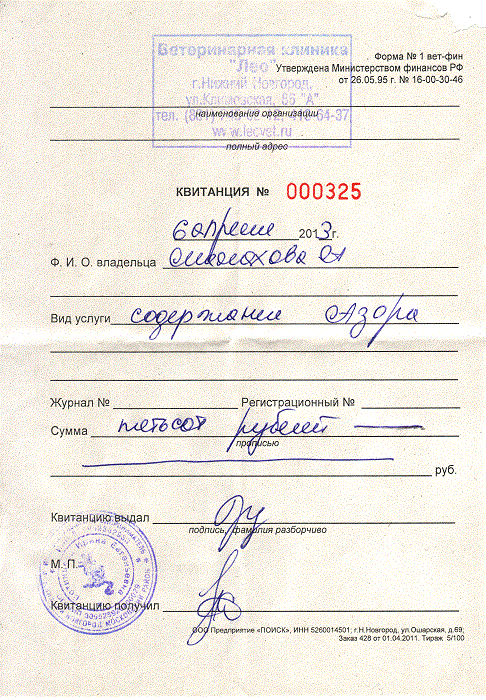 Ветеринарная клиника
"Лео"
г.Нижний Новгород,
ул.Климовская, 86 "А"
тел.
www.lecvet.ru
Форма № 1 вет-фин
Утверждена Министерством финансов РФ
от 26.05.95 г. № 16-00-30-46
наименование организации
полный адрес
КВИТАНЦИЯ № 000325
6 апреля 2013г.
Ф. И. О. владельца
Вид услуги содержание Азора
Журнал № Регистрационный №
Сумма пятьсот рублей
прописью
руб.
Квитанцию выдал
подпись, фамилия разборчиво
М. П.
Квитанцию получил
ООО Предприятие «ПОИСК», ИНН 5260014501; г.Н.Новгород, ул.Ошарская, д.69;
Заказ 428 от 01.04.2011. Тираж 5/100